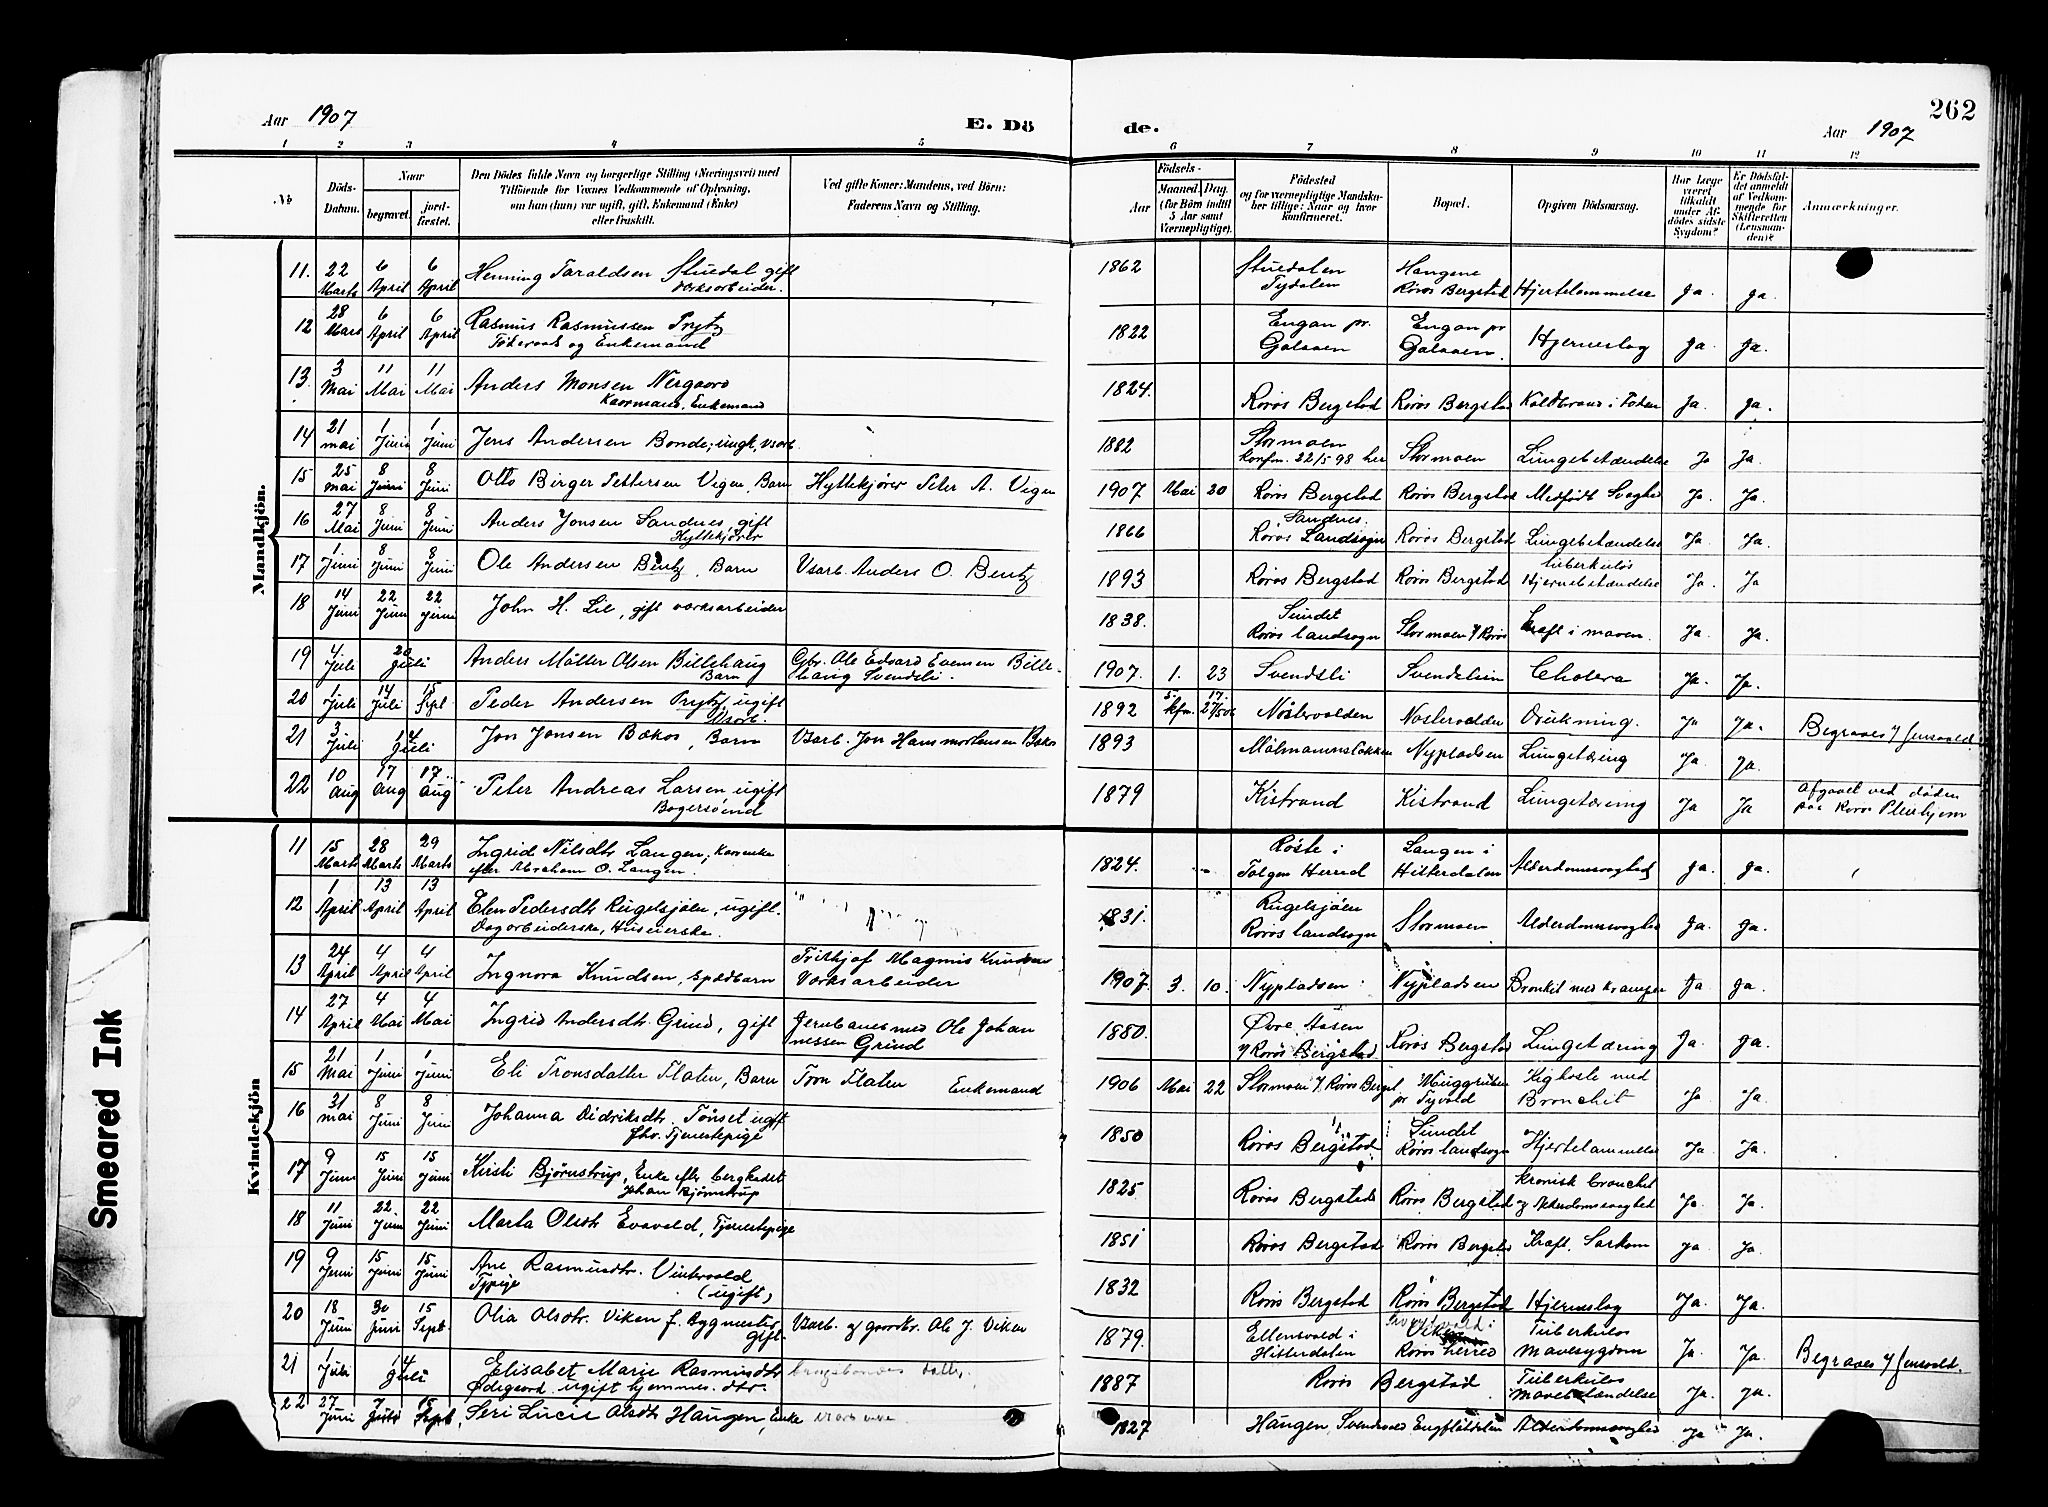 Aar 1907
E. Dö
de.
Aar 1907
262
1 2 3 4 5 6 7 8 9 10 11 12
No
Döds-Datum.
Naar
begravet.
jord-fæstet.
Den Dödes fulde Navn og borgerlige Stilling (Næringsvei) med
Tilföiende for Voxnes Vedkommende af Oplysning,
om han (hun) var ugift, gift, Enkemand (Enke)
eller fraskilt.
Ved gifte Koner: Mandens, ved Börn:
Faderens Navn og Stilling.
Födsels-
Aar
Maaned. Dag.
(for Börn indtil 5 Aar samt Værnepligtige).
Födested
og for værnepligtige Mandskaber tillige: Naar og hvor konfirmeret.
Bopæl.
Opgiven Dödsaarsag.
Har Læge været tilkaldt under Afdödes sidste Sygdom?
Er Dödsfaldet anmeldt af Vedkommende for Skifteretten (Lensmanden)?
Anmærkninger.
Mandkjön.
11. 22 Marts 6 April 6 April Henning Taraldsen Stuedal gift Verksarbeider. 1862 Stuedalen Tydalen Haugene Røros Bergstad Hjertelammelse Ja. ja.
12 28 Mars 6 April 6 April Rasmus Rasmussen Prytz og Enkemand 1822 Engan pr. Galaaen Engan pr Galaaen. Hjerneslag Ja. Ja.
13. 3 Mai 11 Mai 11 Mai Anders Monsen Nergaard Kaarmand, Enkemand 1824. Røros Bergstad Røros Bergstad Koldbrand i Foden Ja. Ja.
14 21 mai 1 Juni 1 Juni Jens Andersen Bonde; ungk, Vsarb. 1882 Stormoen konfm. 22/5 98 her Stormoen Lungebetændelse Ja Ja.
15 25 mai 8 Juni 8 Juni Otto Birger Pettersen Vigen, Barn Hyttekjører Peter A. Vigen 1907 Mai 20 Røros Bergstad Røros Bergstad Medfødt Svaghed Ja. Ja.
16 27 Mai 8 Juni 8 Juni Anders Jonsen Sandnes, gift Hyttekjører 1866 Sandnes. Røros Landsogn Røros Bergstad Lungebetændelse Ja Ja.
17 1 Juni 8 Juni 8 Juni Ole Andersen Bentz, Barn Vsarb. Anders O. Bentz 1893 Røros Bergstad Røros Bergstad tuberkuløs Hjernebetændelse Ja. Ja
18 14 Juni 22 Juni 22 Juni John H. Lie, gift verksarbeider 1838. Sundet Røros landsogn Stormoen y Røros Kræft i maven. Ja. Ja.
19 4 Juli 20 Juli Anders Möller Olsen Billehaug Barn Gbr. Ole Edvard Evensen Billehaug Svendsli. 1907. 1. 23 Svendsli Svendslien Cholera Ja. Ja.
20 1 Juli 14 Juli 15 Sept Peder Andersen Prytz, ugift Vsarb. 1892 5. 17. kfm. Nøstervolden Nøstervolden Drukning. Ja Ja. Begraves y Hensvold
21 3 Juli 14 Juli Jon Jonsen Bækos, Barn Vsarb. Jon Hansmortensen Bækos 1893 Målmannsløkken Nypladsen Lungetæring Ja Ja.
22 10 Aug 17 Aug 17 Aug Peter Andreas Larsen ugift Bagersvend 1879 Kistrand Kistrand Lungetæring Ja Ja Afgaaet ved døden paa Røros Pleiehjem
Kvindekjön
11 15 Marts 28 Marts 29 Marts Ingrid Nilsdtr Langen, Kaarenke efter Abraham O. Langen. 1824. Røste i Tolgen Herred Langen i Hitterdalen Alderdomssvaghed Ja. Ja.
12 1 April 13 April 13 April Elen Pedersdtr Rugelsjøen, ugift. Dagarbeiderske, Huseierske. 1831. Rugelsjøen Røros landsogn Stormoen Alderdomssvaghed Ja. Ja.
13 24 April 4 April 4 April Ingvora Knudsen, spædbarn Frithjof Magnus Knudsen Verksarbeider 1907. 3. 10. Nypladsen Nypladsen Bronkit med Kramper Ja Ja.
14 27 April 4 Mai 4 Mai Ingrid Andersdtr. Grind, gift Jernbanemand Ole Johannessen Grind 1880. Øvre Aasen y Røros Bergstad. Røros Bergstad Lungetæring Ja. Ja.
15 21 Mai 1 Juni 1 Juni Eli Tronsdatter Flaten, Barn Tron Flaten Enkemand 1906 Mai 22 Stormoen y Røros Bergst Muggruben pr Tyvold Kighoste med Bronchit Ja. Ja.
16 31 mai 8 Juni 8 Juni Johanna Didriksdtr. Tønset ugift fhv. Tjenestepige 1850 Røros Bergstad Sundet Røros landsogn Hjertelammelse Ja. Ja.
17 9 Juni 15 Juni 15 Juni Kirsti Bjørnstrup, Enke efter bergkadet Johan Bjørnstrup 1825 Røros Bergstad Røros Bergstad kronisk bronchit og Alderdomssvaghed Ja. Ja.
18 11 Juni 22 Juni 22 Juni Marta Olsdtr Evavold, Tjenestepige 1851 Røros Bergstad Røros Bergstad Kræft. Sarkom Ja. Ja.
19 9 Juni 15 Juni 15 Juni Ane Rasmusdtr. Vintervold Tjpige (ugift) 1832 Røros Bergstad Røros Bergstad Hjerneslag Ja. Ja.
20 18 Juni 30 Juni 15 Sept. Olia Olsdtr. Viken f. Bygmester Gift Vsarb. og gaardbr. Ole J. Viken 1879. Ellensvold i Hitterdalen Viken Røros herred Tuberkuløs Mavesygdom Ja. Ja. Begraves y Hensvold.
21 1 Juli 14 Juli Elisabet Marie Rasmusdtr Ødegaard ugift hjemmev. dtr. 1887 Røros Bergstad Tuberkuløs Mavebetændelse Ja. Ja.
22 27 Juni 7 Juli 15 Sept. Seri Lucie Olsdtr Haugen, Enke 1827 Haugen, Svendsvold Alderdomssvaghed Ja Ja.
Smeared Ink